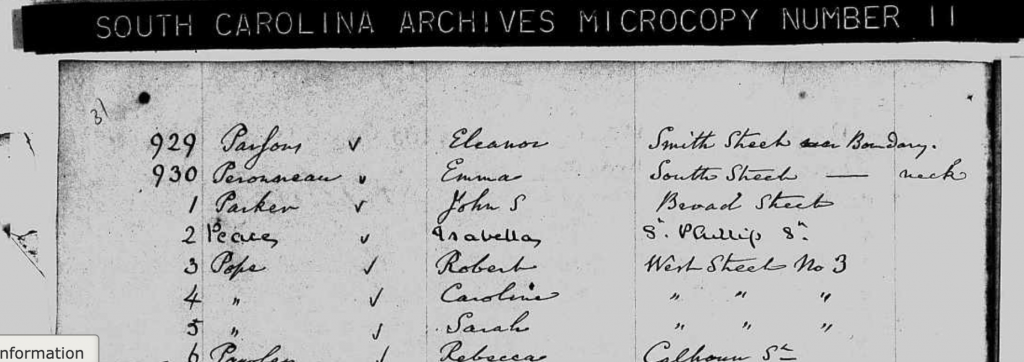 SOUTH CAROLINA ARCHIVES MICROCOPY NUMBER 11
31
929 Parsons ✓ Eleanor Smith Street near Boundary.
930 Peronneau ✓ Emma South Street — neck
1 Parker ✓ John S Broad Street
2 Peace ✓ Isabella St. Phillip St.
3 Pope ✓ Robert West Street No 3
4 " ✓ Caroline " " "
5 " ✓ Sarah " " "
6 ✓ Rebecca Calhoun St
nformation